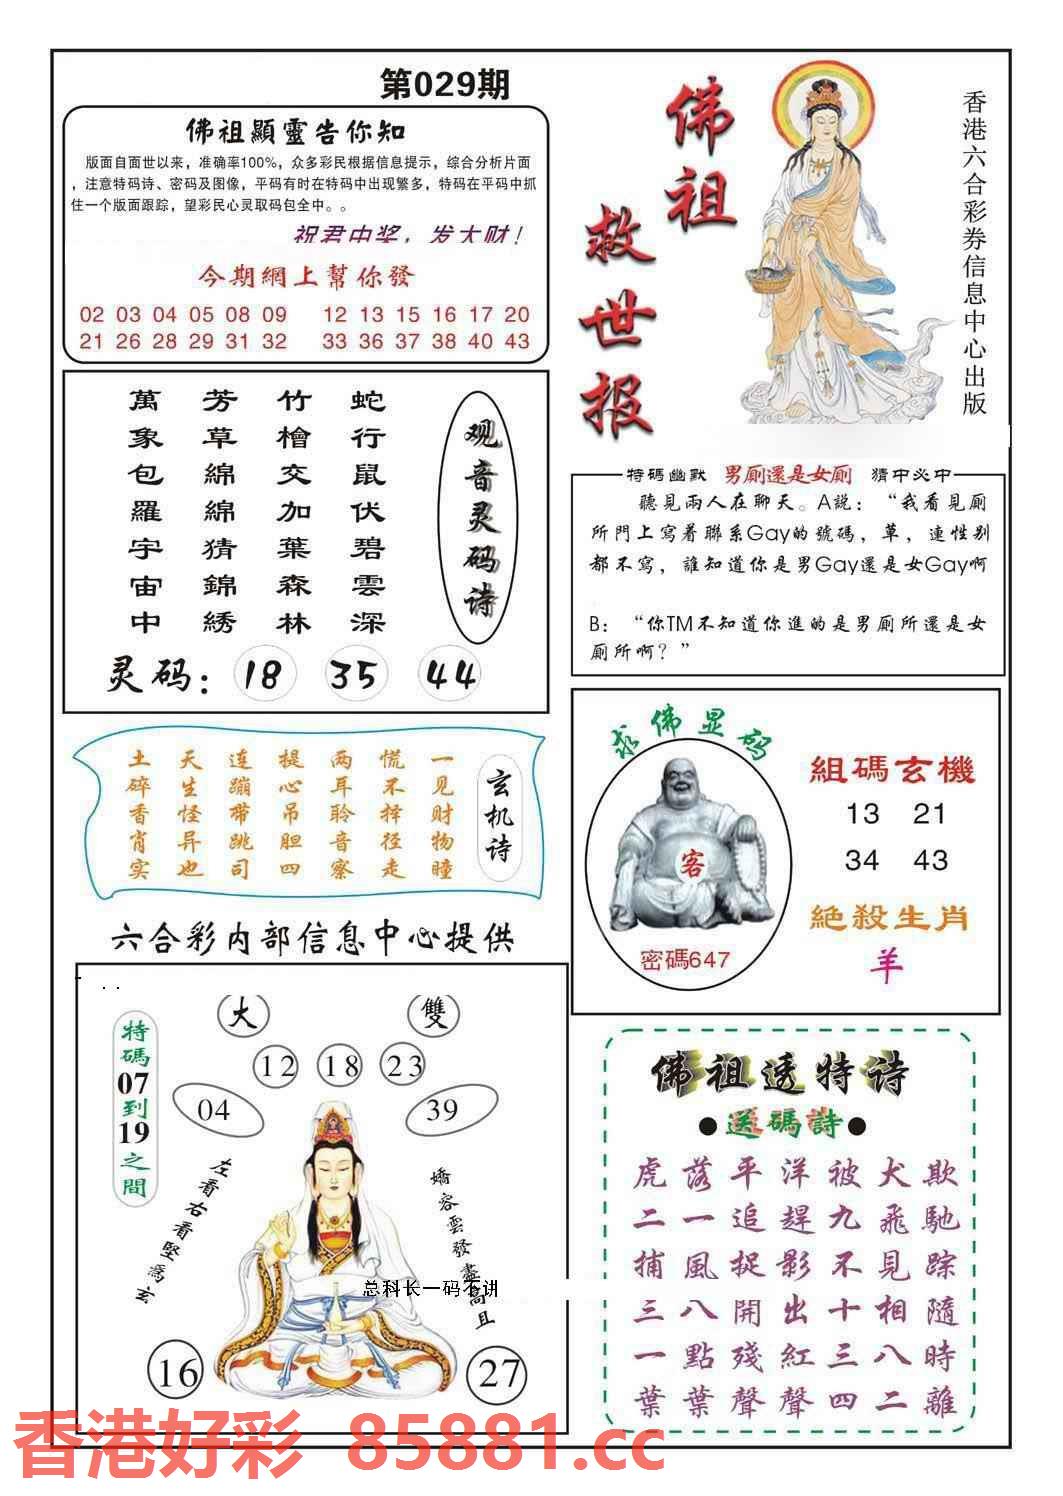 第029期
佛祖顯靈告你知
版面自面世以来，准确率100%，众多彩民根据信息提示，综合分析片面
，注意特码诗、密码及图像，平码有时在特码中出现繁多，特码在平码中抓
住一个版面跟踪，望彩民心灵取码包全中。。
祝君中奖，发大财！
今期網上幫你發
02 03 04 05 08 09 12 13 15 16 17 20
21 26 28 29 31 32 33 36 37 38 40 43
佛祖
救世报
香港六合彩券信息中心出版
观音灵码诗
蛇行鼠伏碧雲深
竹檜交加葉森林
芳草綿綿猜錦綉
萬象包羅宇宙中
灵码：18 35 44
特碼幽默 男厕還是女厕 猜中必中
聽見兩人在聊天。A説：“我看見厕
所門上寫着聯系Gay的號碼，草，連性别
都不寫，誰知道你是男Gay還是女Gay啊
B：“你TM不知道你進的是男厕所還是女
厕所啊？”
玄机诗
一见财物瞳
慌不择径走
两耳聆音察
提心吊胆四
连蹦带跳司
天生怪异也
土碎香肖实
求佛显码
客
密碼647
組碼玄機
13 21
34 43
絶殺生肖
羊
六合彩内部信息中心提供
大 雙
12 18 23
04 39
特碼07到19之間
左看右看堅爲玄
嬌容雲發盡高且
总科长一码不讲
16 27
佛祖透特诗
●送碼詩●
虎落平洋被犬欺
二一追趕九飛馳
捕風捉影不見踪
三八開出十相隨
一點殘紅三八時
葉葉聲聲四二離
香港好彩 85881.cc